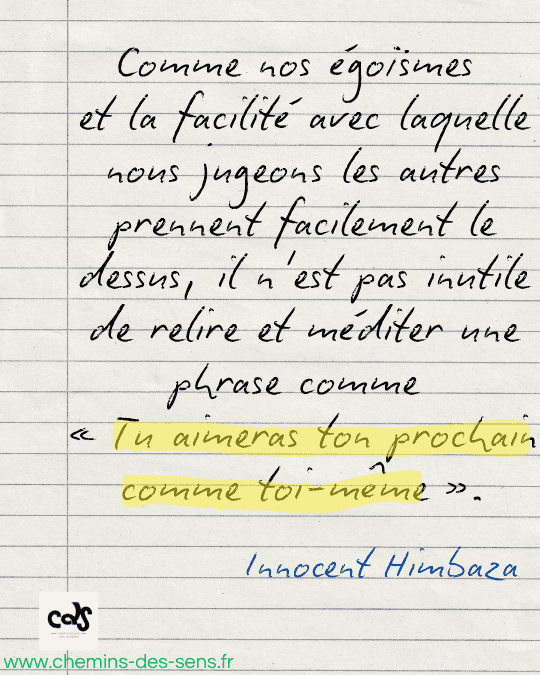 Comme nos égoïsmes
et la facilité avec laquelle
nous jugeons les autres
prennent facilement le
dessus, il n'est pas inutile
de relire et méditer une
phrase comme
« Tu aimeras ton prochain
comme toi-même ».
Innocent Himbaza
cds
www.chemins-des-sens.fr